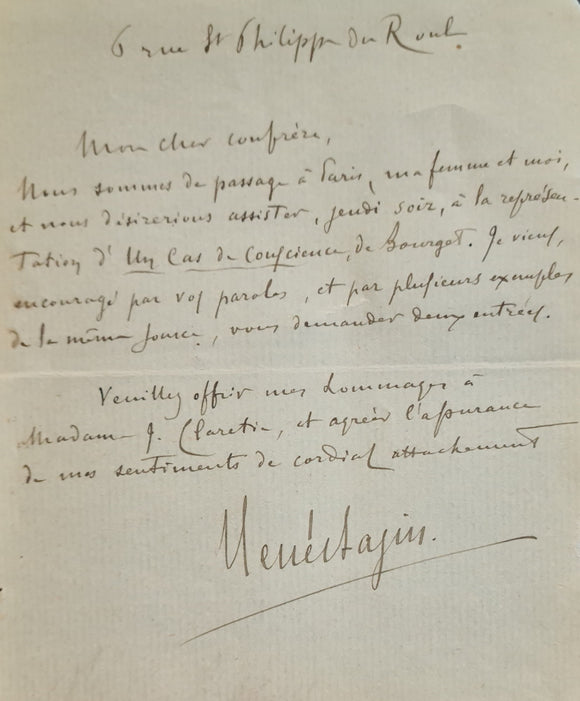 6 rue St Philippe du Roule
Mon cher confrère,
Nous sommes de passage à Paris, ma femme et moi,
et nous désirerions assister, jeudi soir, à la représen-
tation d'Un Cas de Conscience, de Bourget. Je viens,
encouragé par vos paroles, et par plusieurs exemples
de la même source, vous demander deux entrées.
Veuillez offrir mes hommages à
Madame J. Claretie, et agréer l'assurance
de mes sentiments de cordial attachement
René Bazin.